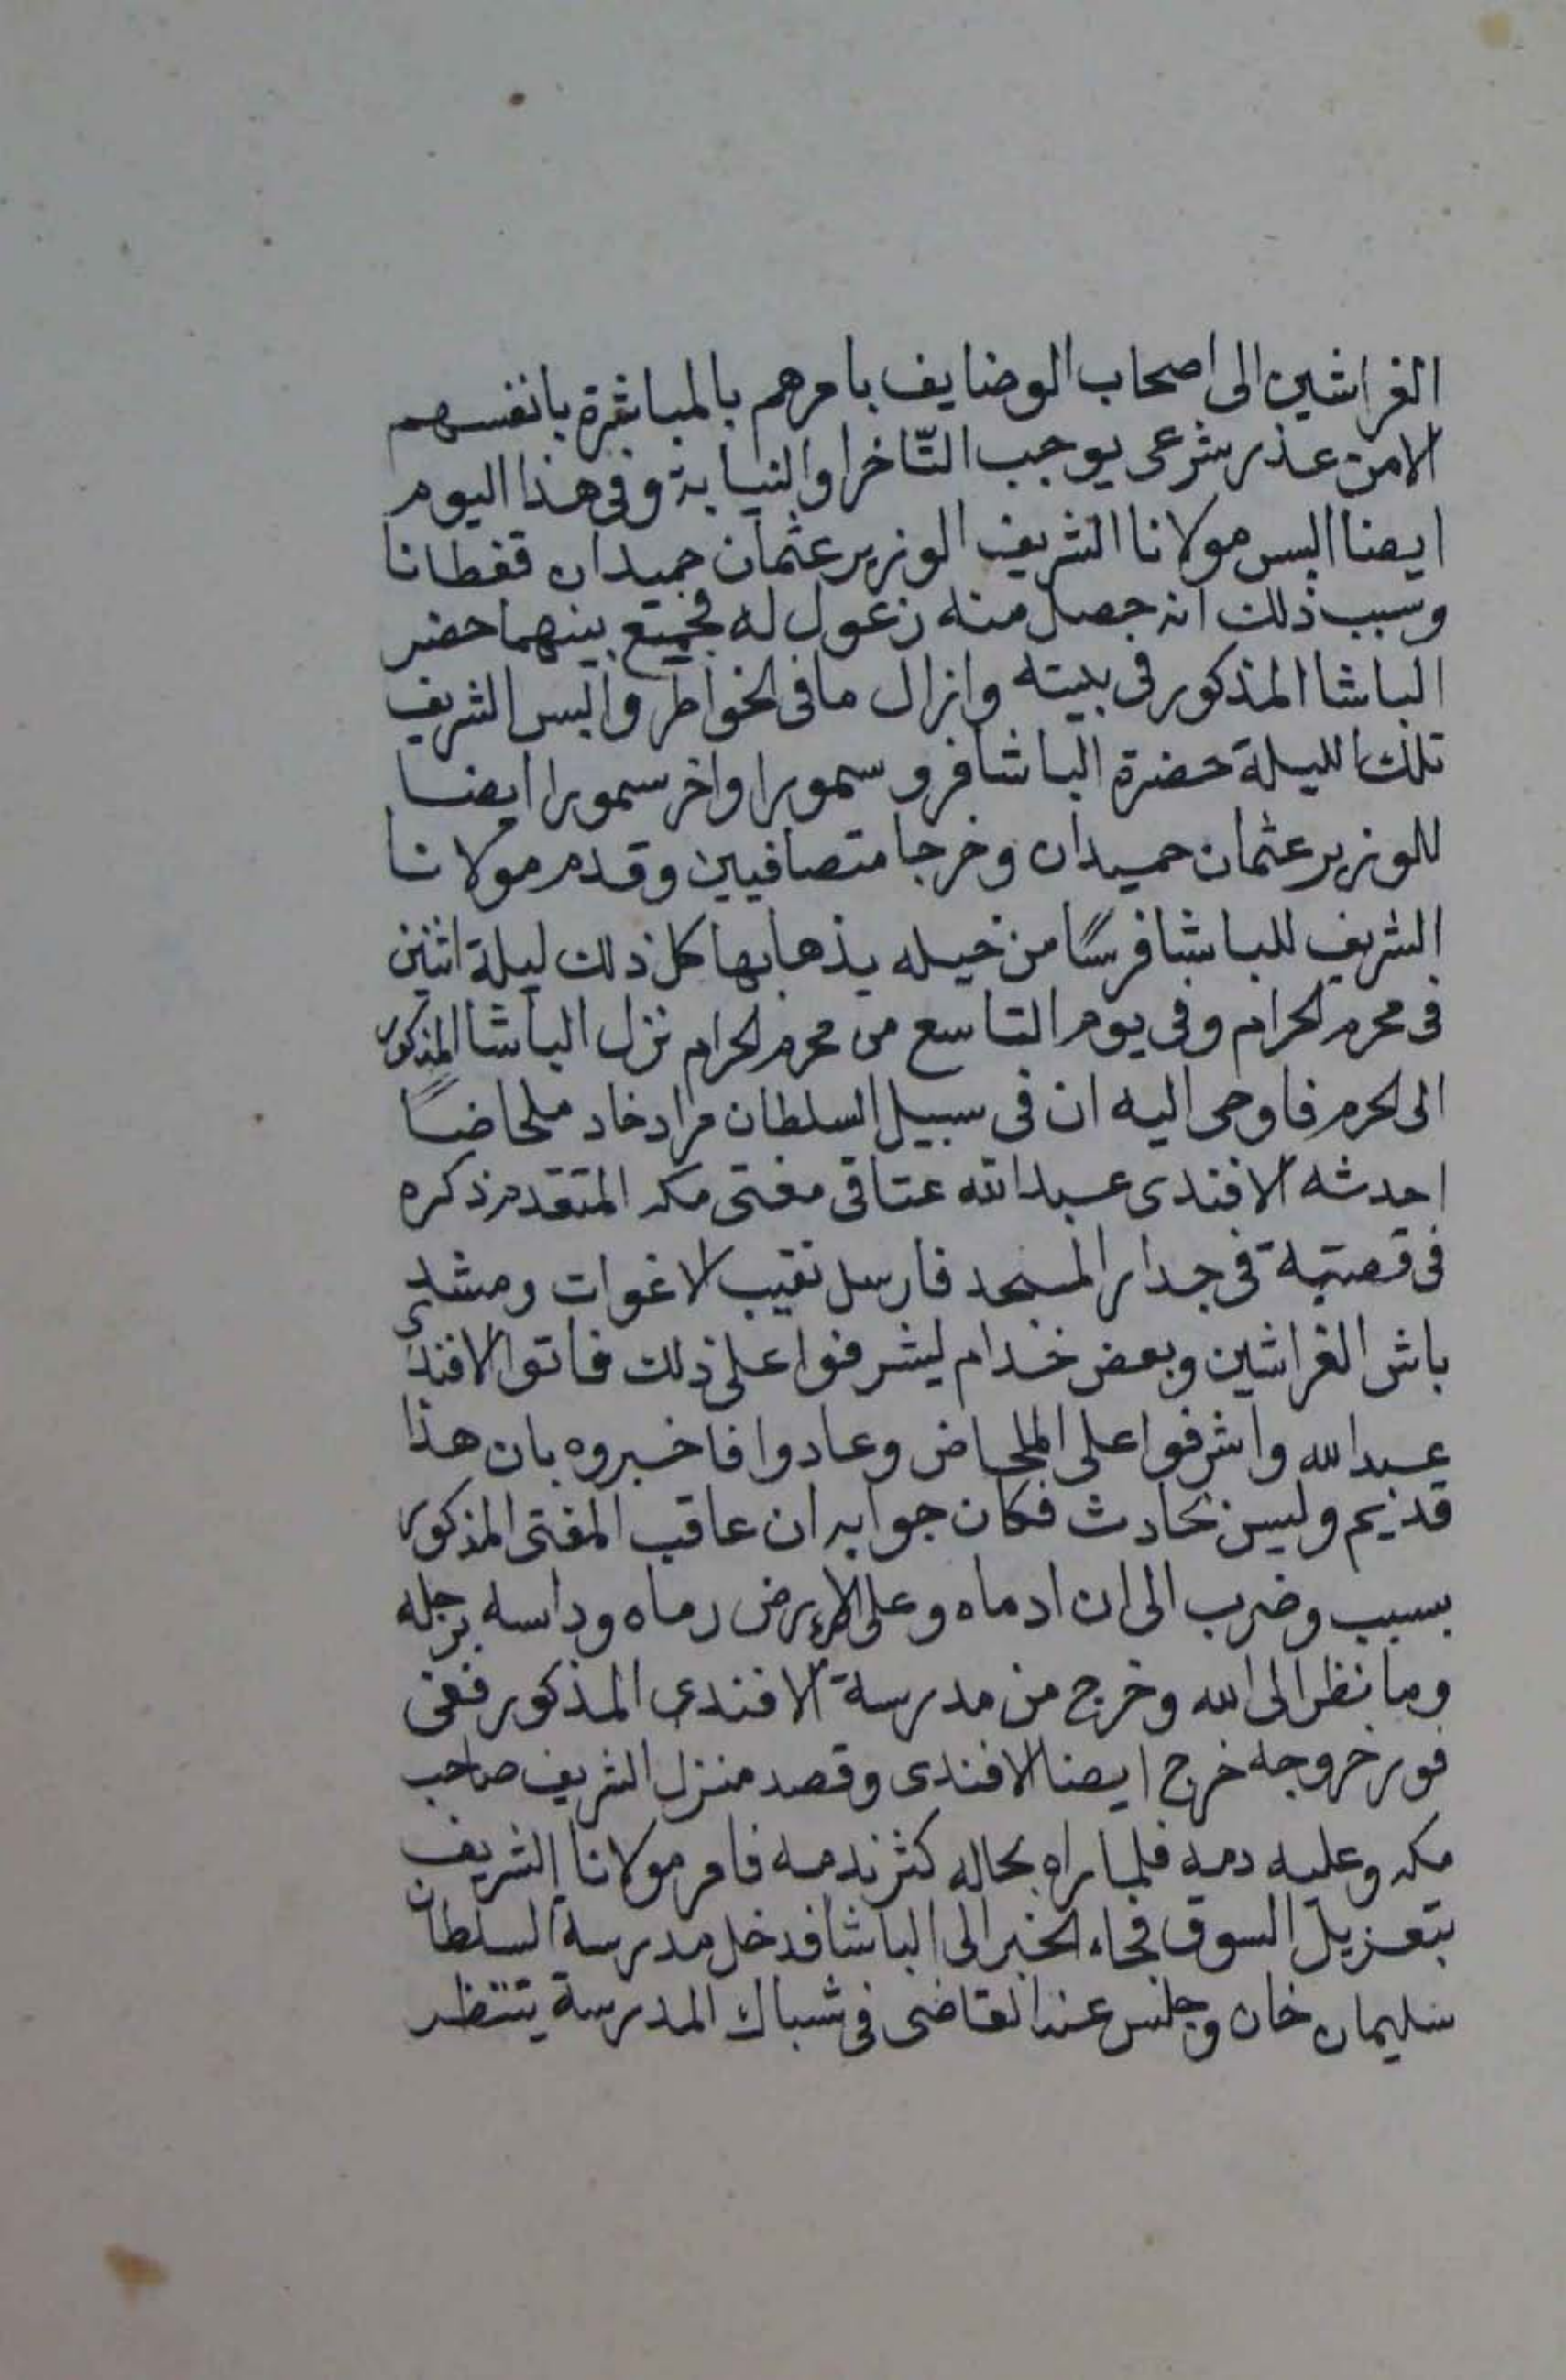 الفراشين الى اصحاب الوضايف بامرهم بالمباشرة بانفسهم
الامن عذر شرعى يوجب التّاخر او النيابة وفى هذا اليوم
ايضا البس مولانا الشريف الوزير عثمان حميدان قفطانا
وسبب ذلك انه حصل منه زعول له فجميع بينهما حضر
الباشا المذكور فى بيته وازال مافى الخواطر والبس الشريف
تلك الليلة حضرة الباشا فرو سمورا واخر سمورا ايضا
للوزير عثمان حميدان وخرجا متصافيين وقدم مولانا
الشريف للباشا فرسًا من خيله يذهابها كل ذلك ليلة اثنين
فى محرم الحرام وفى يوم التاسع من محرم الحرام نزل الباشا المذكور
الى الحرم فاوحى اليه ان فى سبيل السلطان مراد خاد ملحاضًا
احدثه الافندى عبد الله عتاقى مفتى مكه المتقدم ذكره
فى قصبة فى جدار المسجد فارسل نقيب الاغوات ومشد
باش الفراشين وبعض خدام ليشرفوا على ذلك فاتوا الافندى
عبد الله واشرفوا على الملحاض وعادوا فاخبروه بان هذا
قديم وليس بحادث فكان جوابه ان عاقب المفتى المذكور
بسبب وضرب الى ان ادماه وعلى الارض رماه وداسه برجله
وما نظر الى الله وخرج من مدرسة الافندى المذكور ففى
فور خروجه خرج ايضا الافندى وقصد منزل الشريف صاحب
مكه وعليه دمه فلما راه بحاله كثر ندمه فامر مولانا الشريف
بتعزيل السوق فجاء الخبر الى الباشا فدخل مدرسة السلطان
سليمان خان وجلس عند القاضى فى شباك المدرسة ينتظر